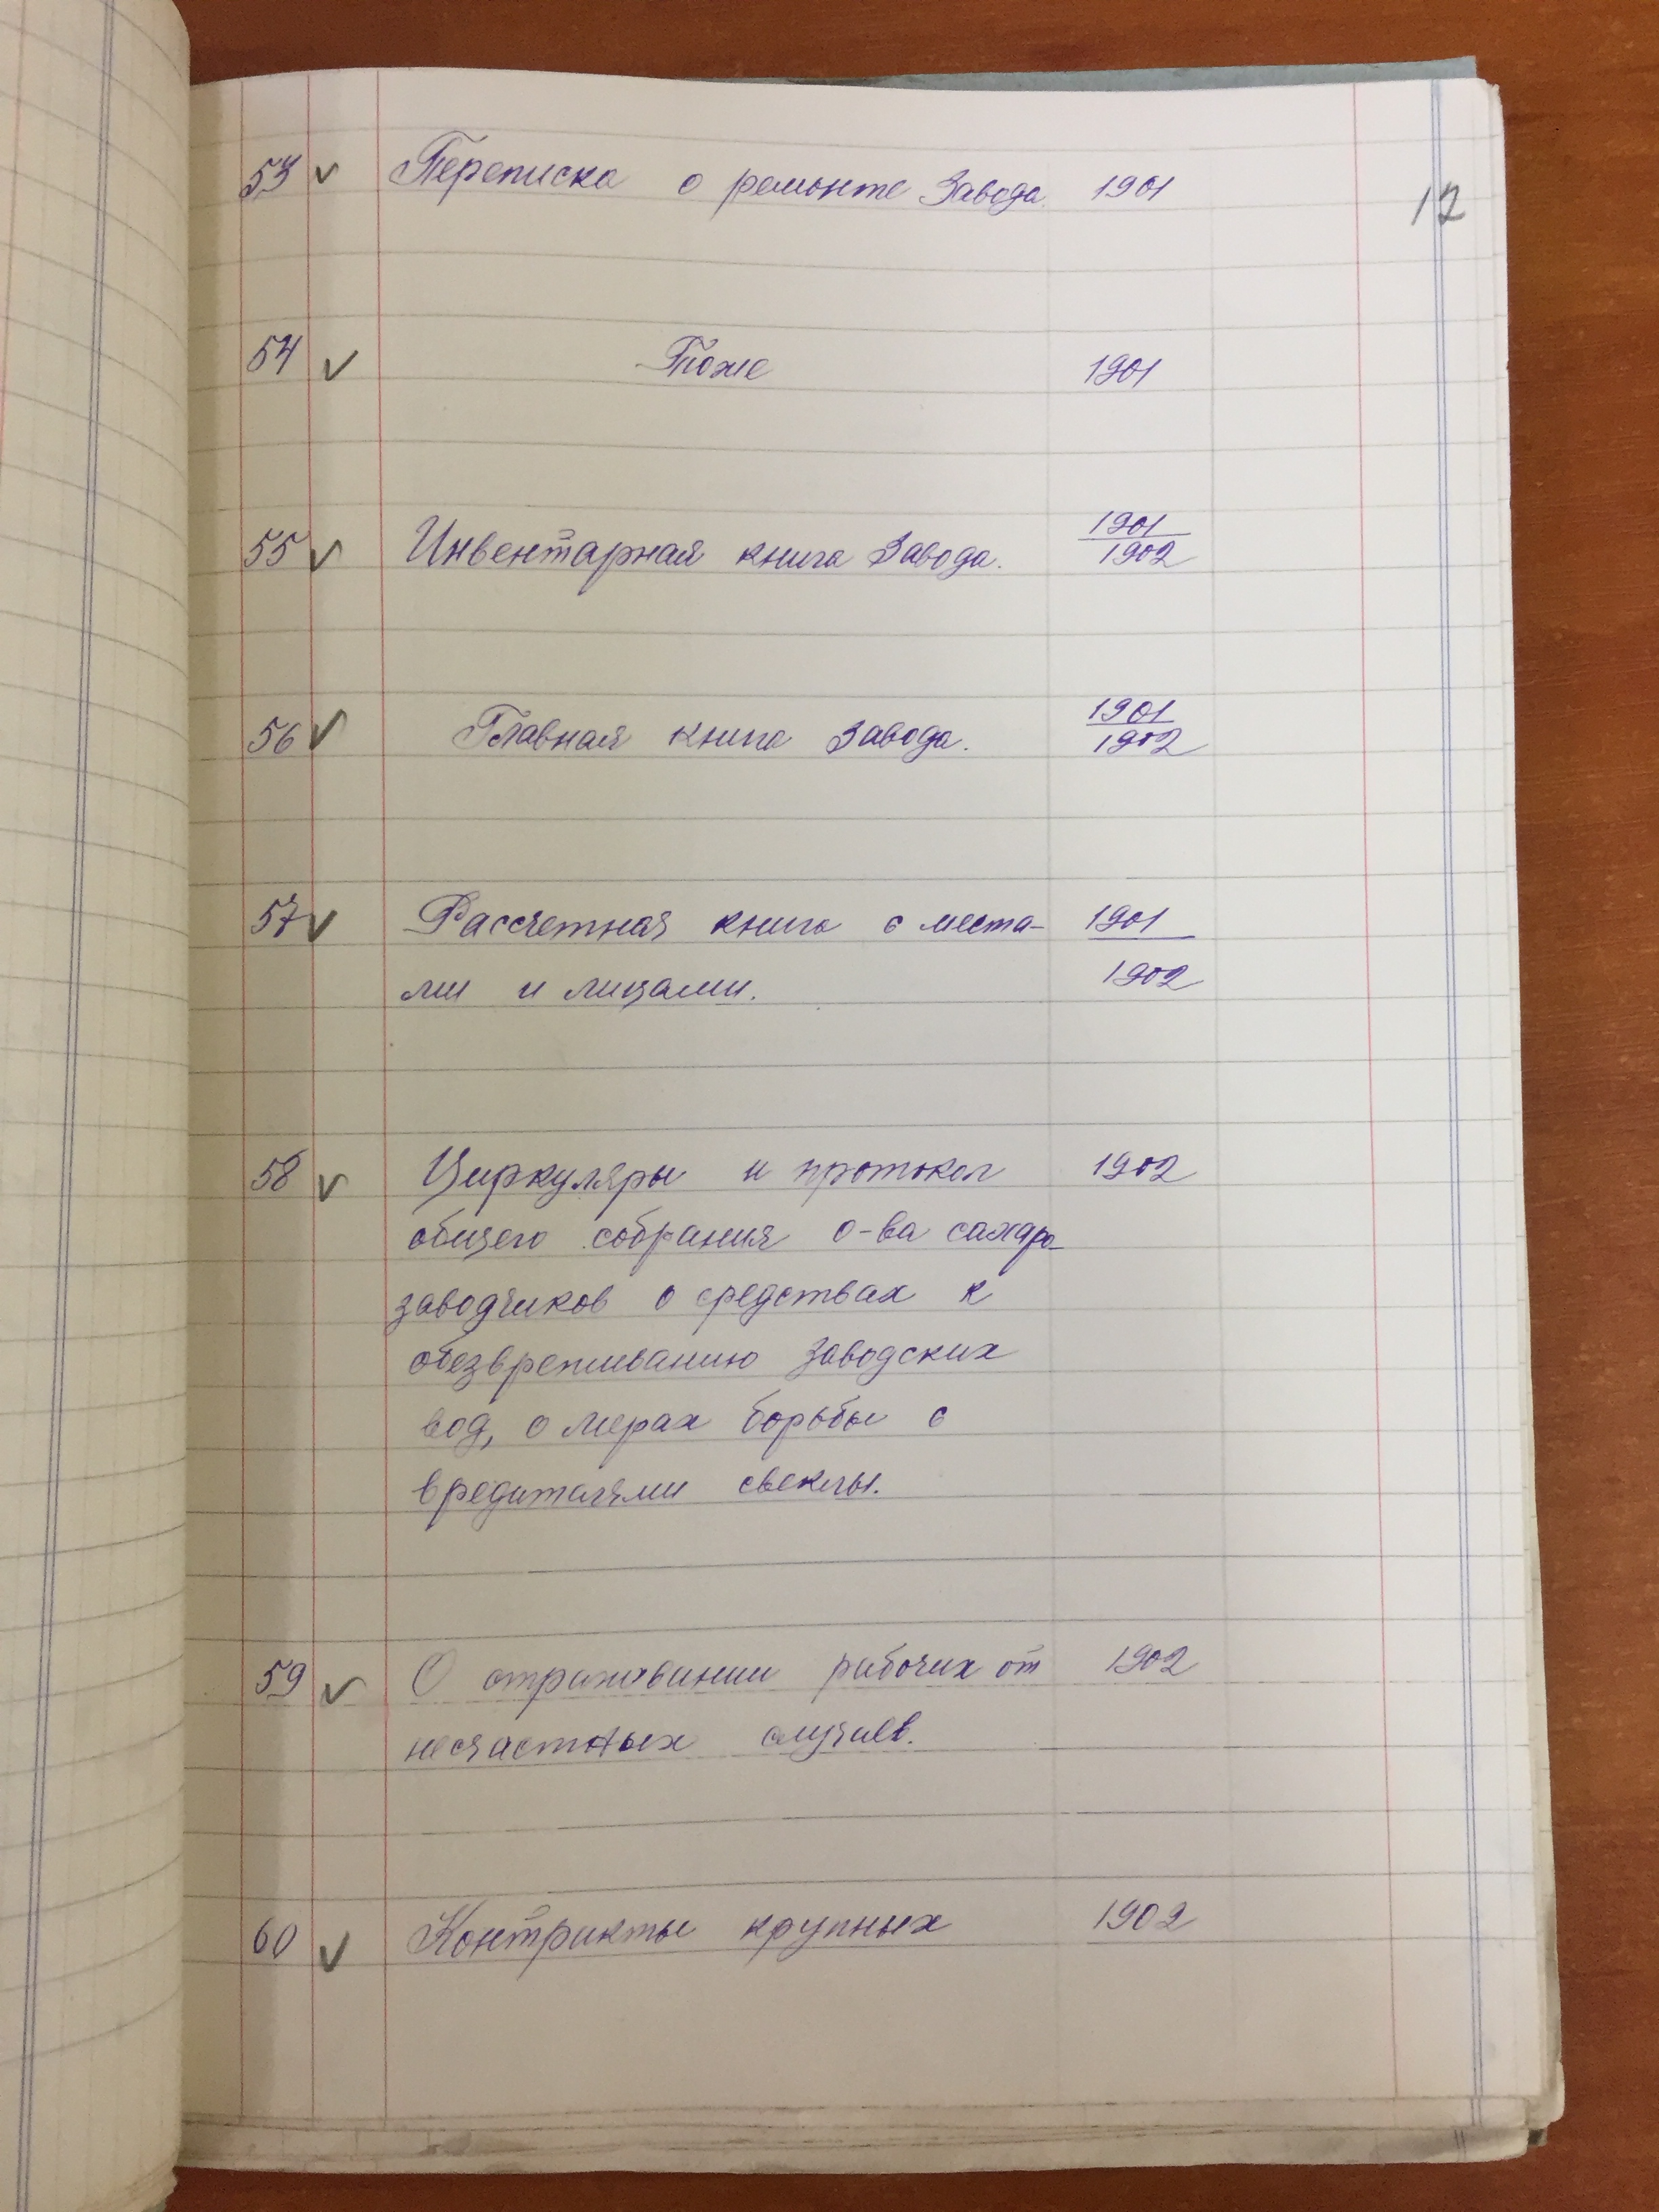 12
53 ✓ Переписка о ремонте Завода. 1901
54 ✓ Тоже 1901
55 ✓ Инвентарная книга Завода. 1901
1902
56 ✓ Главная книга Завода. 1901
1902
57 ✓ Рассчетная книга с места- 1901
ми и лицами. 1902
58 ✓ Циркуляры и протокол 1902
общего собрания о-ва сахаро-
заводчиков о средствах к
обезвреживанию заводских
вод, о мерах борьбы с
вредителями свеклы.
59 ✓ О страховании рабочих от 1902
несчастных случаев.
60 ✓ Контракты крупных 1902